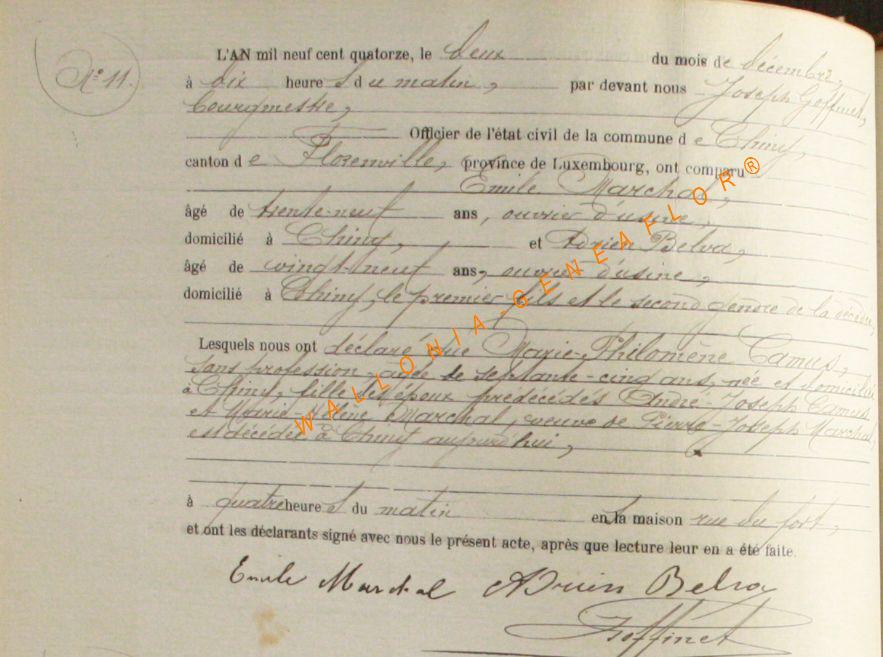 N° 11.
L'AN mil neuf cent quatorze, le deux du mois de décembre,
à dix heures du matin, par devant nous Joseph Goffinet,
bourgmestre,
Officier de l'état civil de la commune de Chiny,
canton de Florenville, province de Luxembourg, ont comparu
Emile Marchal,
âgé de trente-neuf ans, ouvrier d'usine,
domicilié à Chiny, et Adrien Belva,
âgé de vingt-neuf ans, ouvrier d'usine,
domicilié à Chiny, le premier fils et le second gendre de la décédée,
Lesquels nous ont déclaré que Marie-Philomène Camus,
sans profession, agée de septante-cinq ans, née et domiciliée
à Chiny, fille des époux prédécédés André-Joseph Camus
et Marie-Hélène Marchal, veuve de Pierre-Joseph Marchal,
est décédée à Chiny aujourd'hui,
à quatre heures du matin en la maison rue du fort,
et ont les déclarants signé avec nous le présent acte, après que lecture leur en a été faite.
Emile Marchal Adrien Belva
Goffinet
WALLONIA-GENEAFLOR®